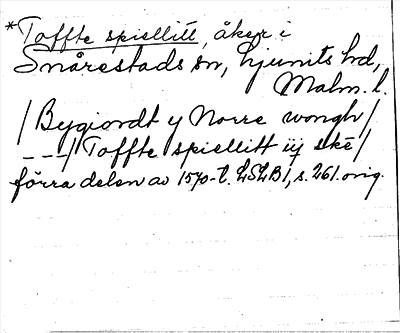 *Toffte spiellitt, åker i
Snårestads sn, Ljunits hd,
Malm. l.
/Bygiordt y Norre wongh/
---/Toffte spiellitt iij ske/
förra delen av 1570-t. LSLB1, s. 261. orig.